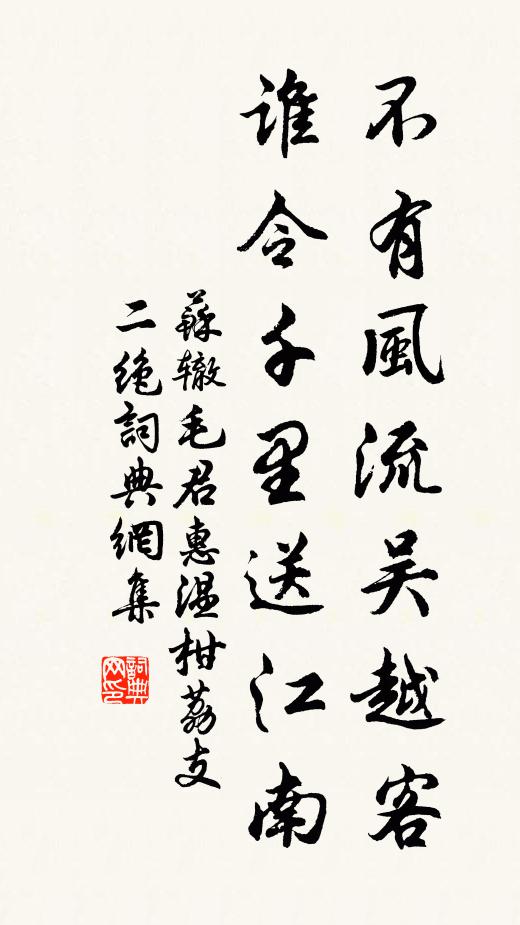 不有風流吴越客
誰令千里送江南
蘇辙毛君惠溫柑荔支
二绝詞典網集
詞典网印